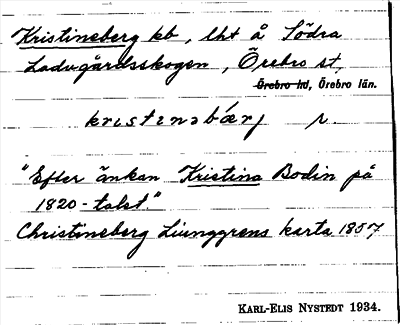 Kristineberg kb, lht å Södra
Ladugårdsskogen, Örebro st,
Örebro hd, Örebro län.
kristinəbǽrj r.
"Efter änkan Kristina Bodin på
1820-talet"
Christineberg Liunggrens karta 1857
KARL-ELIS NYSTEDT 1934.